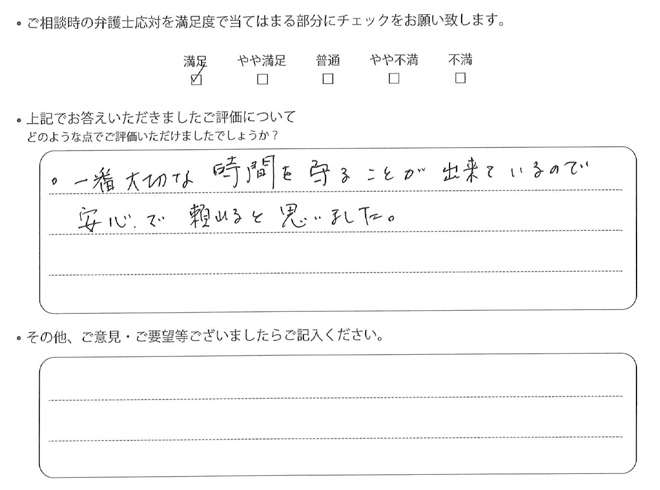 • ご相談時の弁護士応対を満足度で当てはまる部分にチェックをお願い致します。
満足 やや満足 普通 やや不満 不満
☑ ☐ ☐ ☐ ☐
• 上記でお答えいただきましたご評価について
どのような点でご評価いただけましたでしょうか？
。一番大切な時間を守ることが出来ているので
安心で頼れると思いました。
• その他、ご意見・ご要望等ございましたらご記入ください。